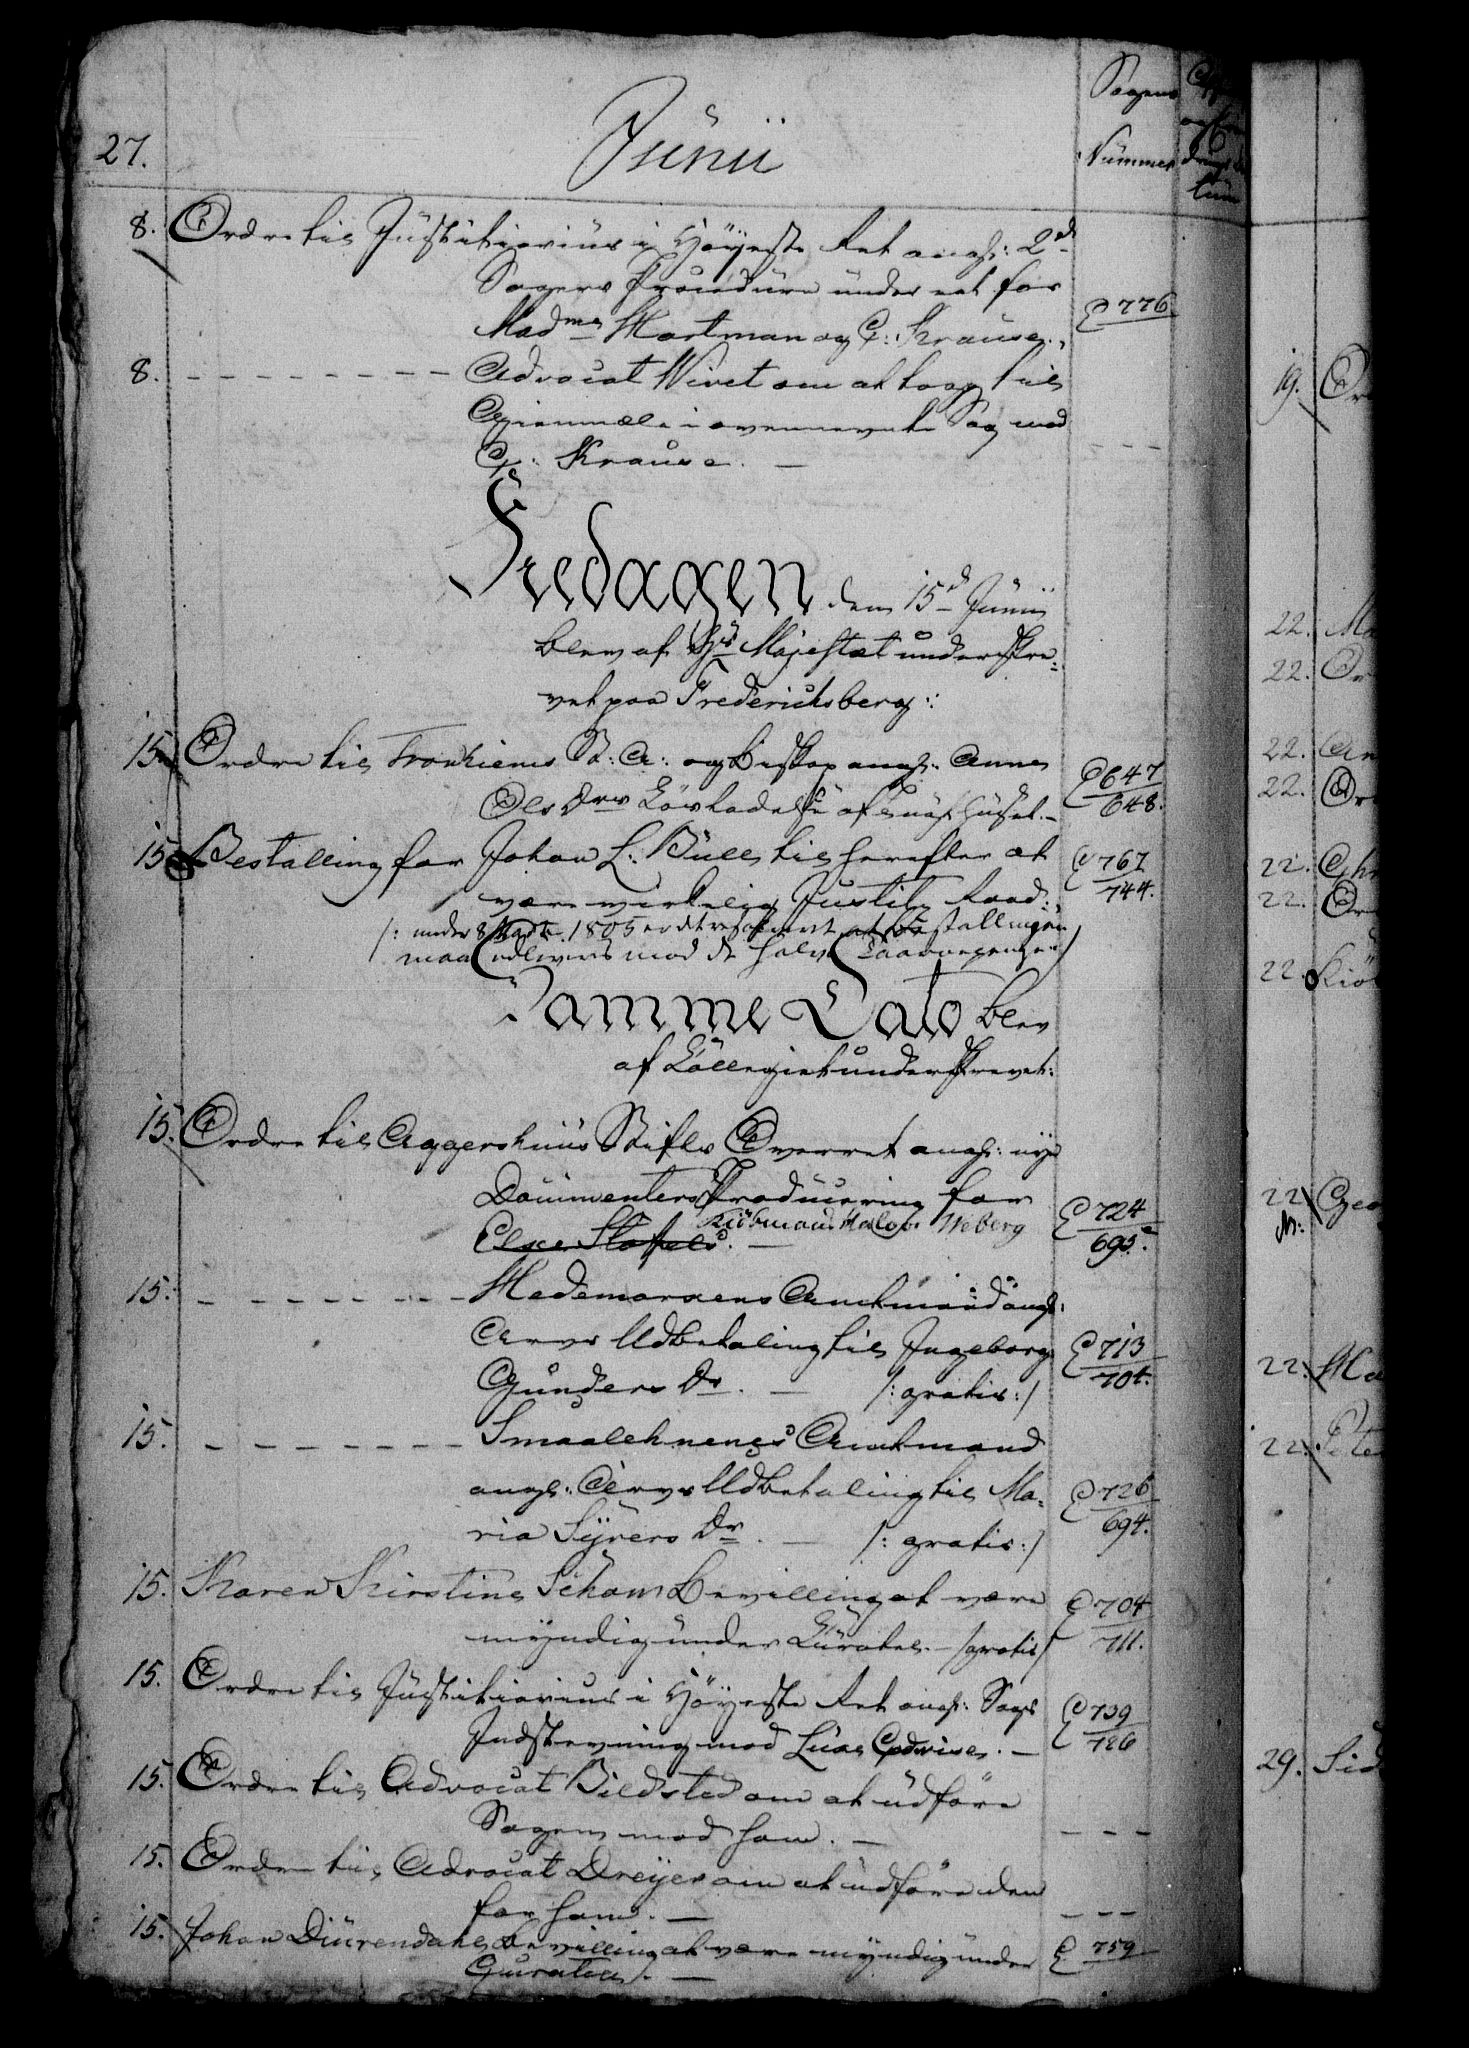 27. Junii
Sagens
Nummer
8. Ordre til Justitiarius i Höyeste Ret angl: 2de
Sagers Procedure under eet for
Madme Hartman og C: Krause.
E 776
8. - - - - - - - - - Advocat Wivet om at tage til
Gienmæle i ovennevnte Sag mod
C: Krause. —
- - -
Fredagen den 15d Junii
blev af Hs Majestæt underskre-
vet paa Fredericksberg:
15. Ordre til Tronhiems St: A: og Biskop angl: Anne
Ols Drs Lösladelse af Tugthuset. —
E 647
648.
15. Bestalling for Johan L: Bull til herefter at
være virkelig Justitz Raad.
E 767
744.
/: under 8 1805 er det resolveret at Bestallingen
maa udleveres mod de halve :/
Samme Dato blev
af Collegiet underskrevet:
15. Ordre til Aggershuus Stifts Overret angl: nye
Documenters Producering for
Kiöbmand Weberg
E 724
695.
15. - - - - - - - Hedemarkens Amtmand angl:
Arvs Udbetaling til Ingeborg
Gunders Dr. — /: gratis :/
E 713
701.
15. - - - - - - - Smaalehnenes Amtmand
angl: Arvs Udbetaling til Ma-
ria Syvers Dr. — /: gratis :/
E 726
694.
15. Karen Kirstine Schow Bevilling at være
myndig under Curatel. — /gratis/
E 704
711.
15. Ordre til Justitiarius i Höyeste Ret angl: Sags
Indstevning mod Lucas —
E 739
726
15. Ordre til Advocat Bildsted om at udföre
Sagen mod ham. —
- - -
15. Ordre til Advocat Dreyer om at udföre den
for ham. —
- - -
15. Johan Diürendahl Bevilling at være myndig under
Curatel. —
E 759
19. Or
22.
22. Or
22. An
22. Or
22. Chr
22. Or
22. Kiö
22. Geo
22. Ma
22. Pete
29. Sid